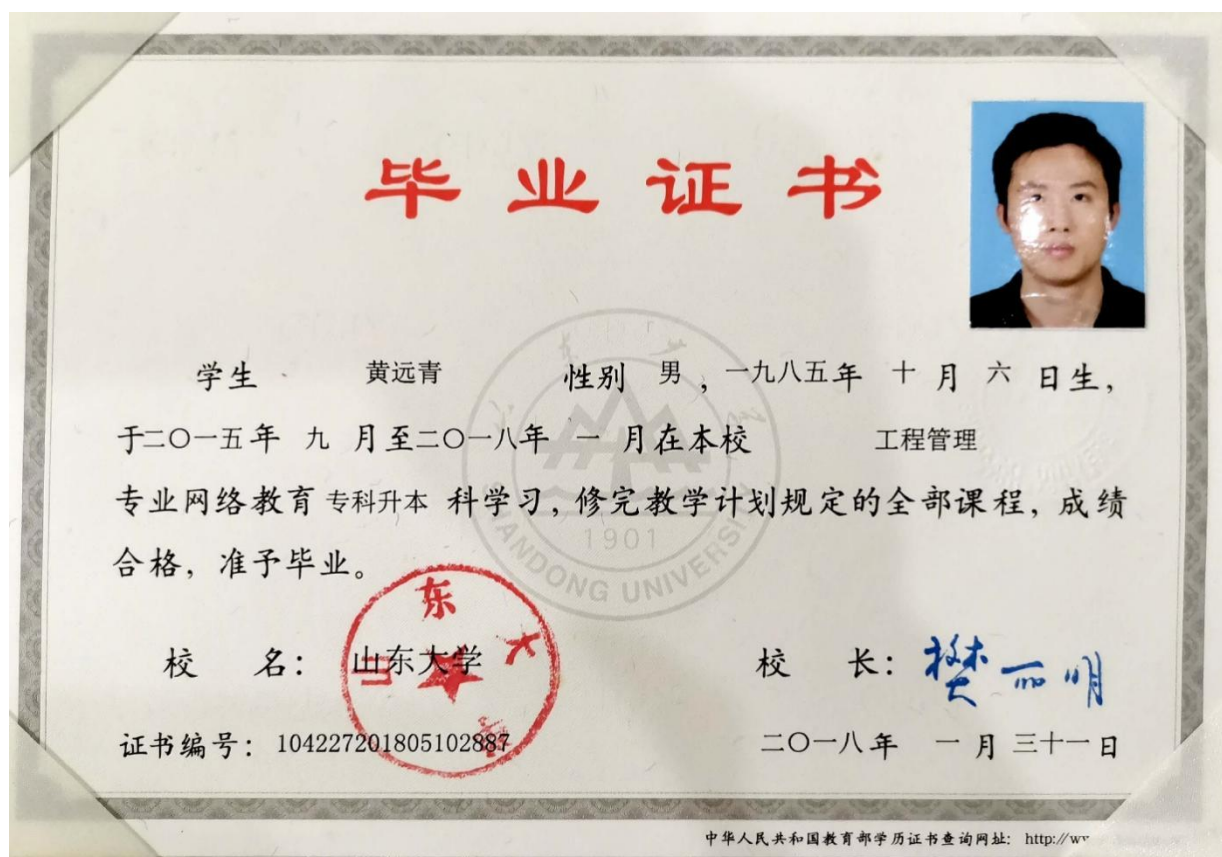 毕业证书
学生 黄远青 性别 男 , 一九八五年 十 月 六 日生,
于二〇一五年 九 月至二〇一八年 一 月在本校 工程管理
专业网络教育 专科升本 科学习, 修完教学计划规定的全部课程, 成绩
合格, 准予毕业。
1901
SHANDONG UNIVERSITY
校 名: 山东大学
山东大学
校 长: 樊丽明
证书编号: 104227201805102887
二〇一八年 一月 三十一日
中华人民共和国教育部学历证书查询网址: http://w